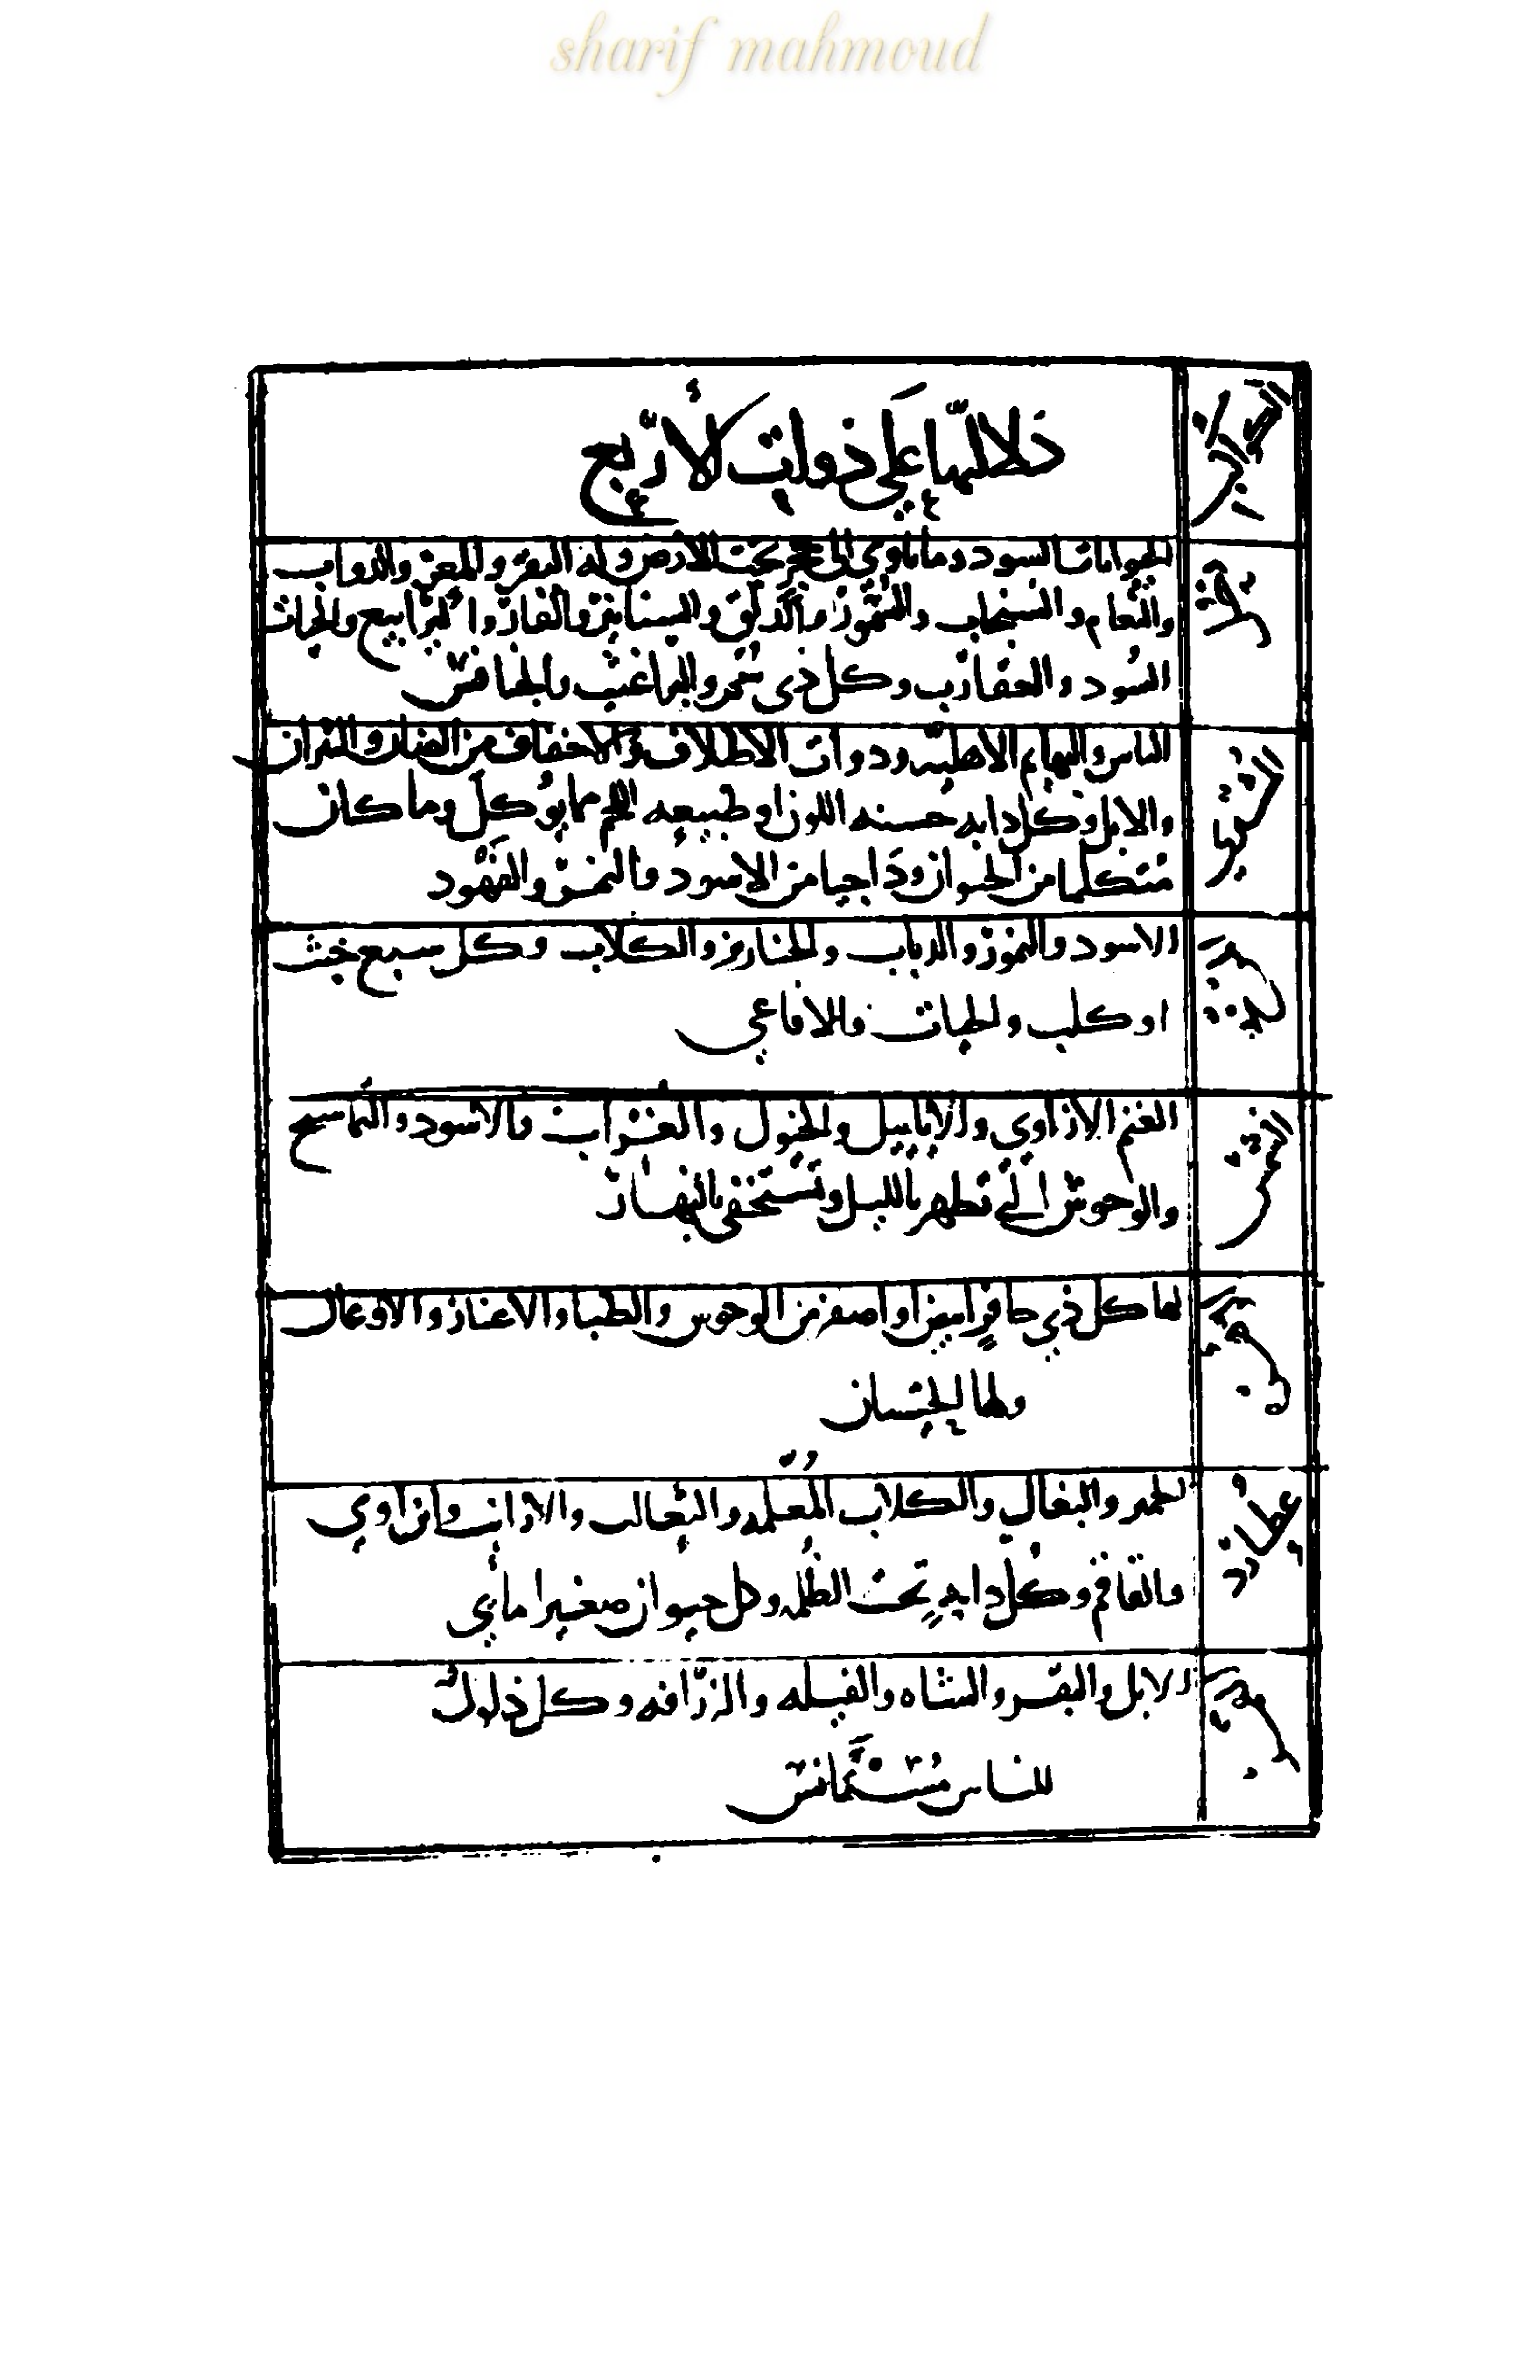 sharif mahmoud
الكواكب
دلالتها على ذوات الأربع
زحل
الحيوانات السود وما ياوي الى حجر تحت الارض وله البقر والمعز والدواب
والنعام والسنجاب والسمور والدلق والسنانير والفار واليرابيع والحيات
السود والعقارب وكل ذي سم والبراغيث والخنافس
المشتري
الناس والبهايم الاهليه وذوات الاظلاف والاخفاف من الضان والثيران
والابل وكل دابه حسنه اللون او طبيعه اللحم مما يوكل وما كان
متكلما من الحيوان وداجيا من الاسود والنمر والفهود
المريخ
الاسود والنمور والدباب والخنازير والكلاب وكل سبع خبث
او كلب والحيات والافاعي
الشمس
الغنم الاراوي والايابيل والخيول والاسود والتماسيح
والوحوش التي تظهر بالليل وتستخفي بالنهار
الزهرة
لها كل ذي حافر ابيض او اصفر من الوحوس والظبا والاوعال
ولها الحيتان
عطارد
الحمر والبغال والكلاب المعلمه والثعالب والارانب وابن اوي
والقاقم وكل دابه تحت الظلمه وكل حيوان صغير مايي
القمر
الابل والبقر والشاه والفيله والزرافه وكل ذلول
للناس مستانس